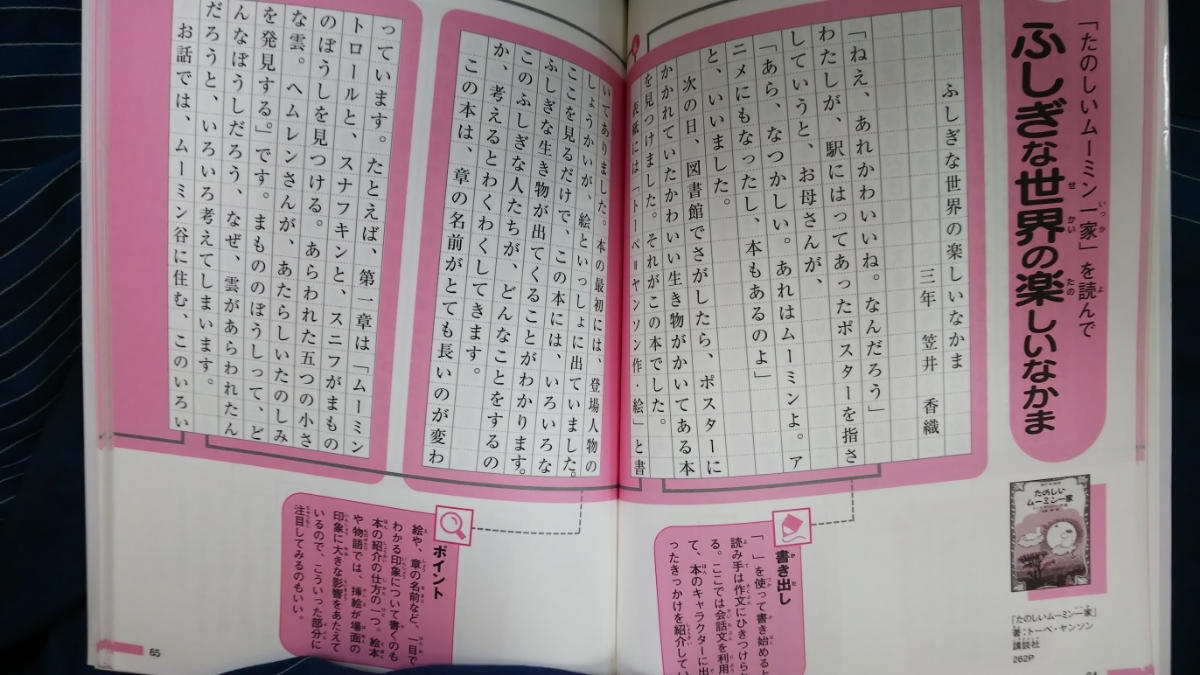 「たのしいムーミン一家」を読んで
ふしぎな世界の楽しいなかま
ふしぎな世界の楽しいなかま
三年　笠井　香織
「ねえ、あれかわいいね。なんだろう」
わたしが、駅にはってあったポスターを指さ
していうと、お母さんが、
「あら、なつかしい。あれはムーミンよ。ア
ニメにもなったし、本もあるのよ」
と、いいました。
次の日、図書館でさがしたら、ポスターに
かかれていたかわいい生き物がかいてある本
を見つけました。それがこの本でした。
表紙には「トーベ＝ヤンソン作・絵」と書
いてありました。本の最初には、登場人物の
しょうかいが、絵といっしょに出ていました。
ここを見るだけで、この本には、いろいろな
ふしぎな生き物が出てくることがわかります。
このふしぎな人たちが、どんなことをするの
か、考えるとわくわくしてきます。
この本は、章の名前がとても長いのが変わ
っています。たとえば、第一章は「ムーミン
トロールと、スナフキンと、スニフがまもの
のぼうしを見つける。あらわれた五つの小さ
な雲。ヘムレンさんが、あたらしいたのしみ
を発見する。」です。まもののぼうしって、ど
んなぼうしだろう、なぜ、雲があらわれたん
だろうと、いろいろ考えてしまいます。
お話では、ムーミン谷に住む、このいろい
たのしい
ムーミン一家
「たのしいムーミン一家」
著：トーベ・ヤンソン
講談社
262P
書き出し
「　」を使って書き始めると
読み手は作文にひきつけら
る。ここでは会話文を利用
て、本のキャラクターに出
ったきっかけを紹介してい
ポイント
絵や、章の名前など、一目で
わかる印象について書くのも
本の紹介の仕方の一つ。絵本
や物語では、挿絵が場面の
印象に大きな影響をあたえて
いるので、こういった部分に
注目してみるのもいい。
65